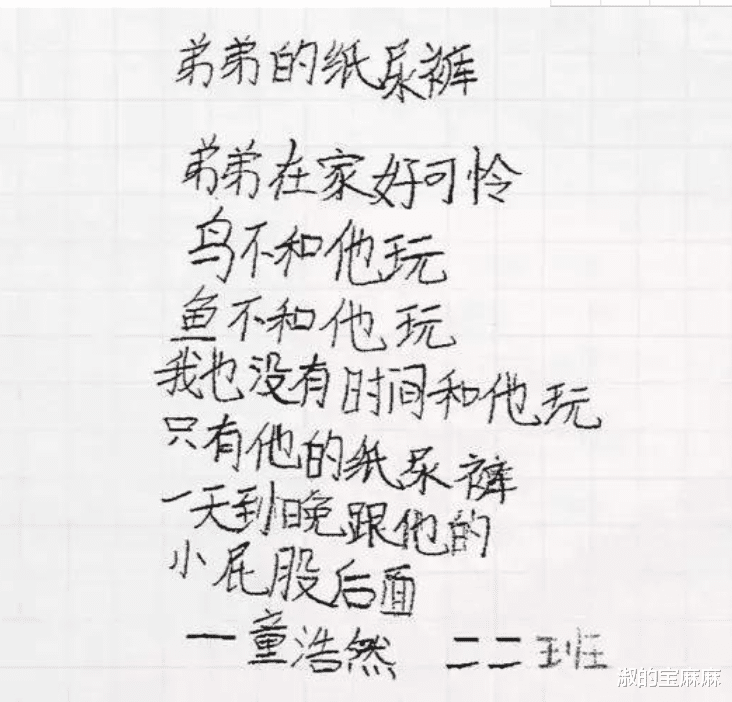 弟弟的纸尿裤
弟弟在家好可怜
鸟不和他玩
鱼不和他玩
我也没有时间和他玩
只有他的纸尿裤
一天到晚跟他的
小屁股后面
一童浩然 二二班
淑的宝麻麻